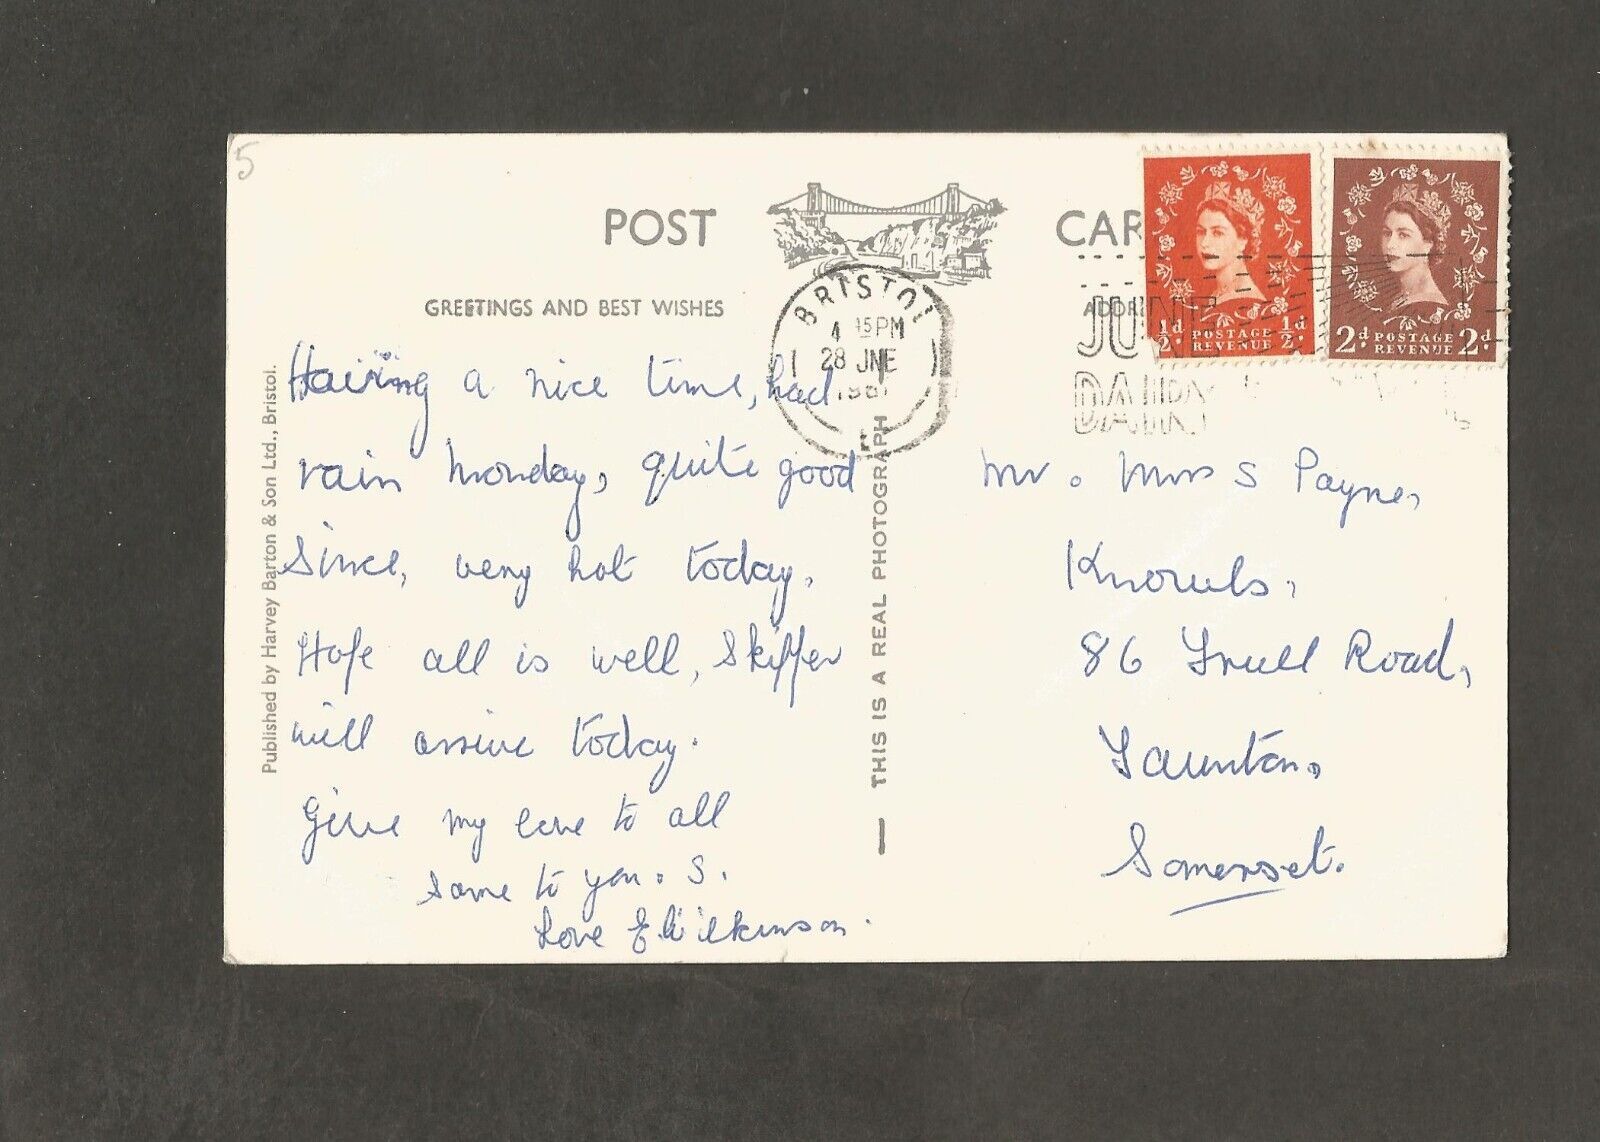 5
POST CAR
GREETINGS AND BEST WISHES
BRISTOL
4 45PM
28 JNE
1961
JUNE
DAIRY
½d. POSTAGE REVENUE ½d.
2d. POSTAGE REVENUE 2d.
Having a nice time, had
rain Monday, quite good
Since, very hot today.
Hope all is well, Skipper
will arrive today.
Give my love to all
Same to you. S.
Love E Wilkinson.
Published by Harvey Barton & Son Ltd., Bristol.
THIS IS A REAL PHOTOGRAPH
Mr. Mrs S Payne,
Knowls,
86 Trull Road,
Taunton,
Somerset.